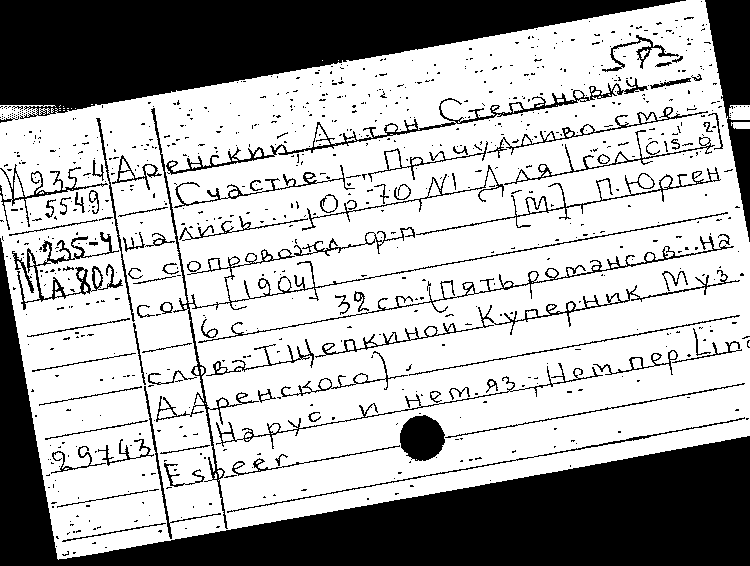 573
Аренский, Антон Степанович
М 235-4
5549
Счастье. [„Причудливо сме-
шались..."] Op. 70, N1 Для 1 гол [cis-g²]
М 235-4
А.802
с сопровожд. ф-п. [М.], П. Юрген-
сон, [1904].
6 с. 32 см. (Пять романсов.. на
слова Т. Щепкиной-Куперник Муз.
А. Аренского).
На рус. и нем. яз.; Нем. пер. Lina
29743
Esbeer.